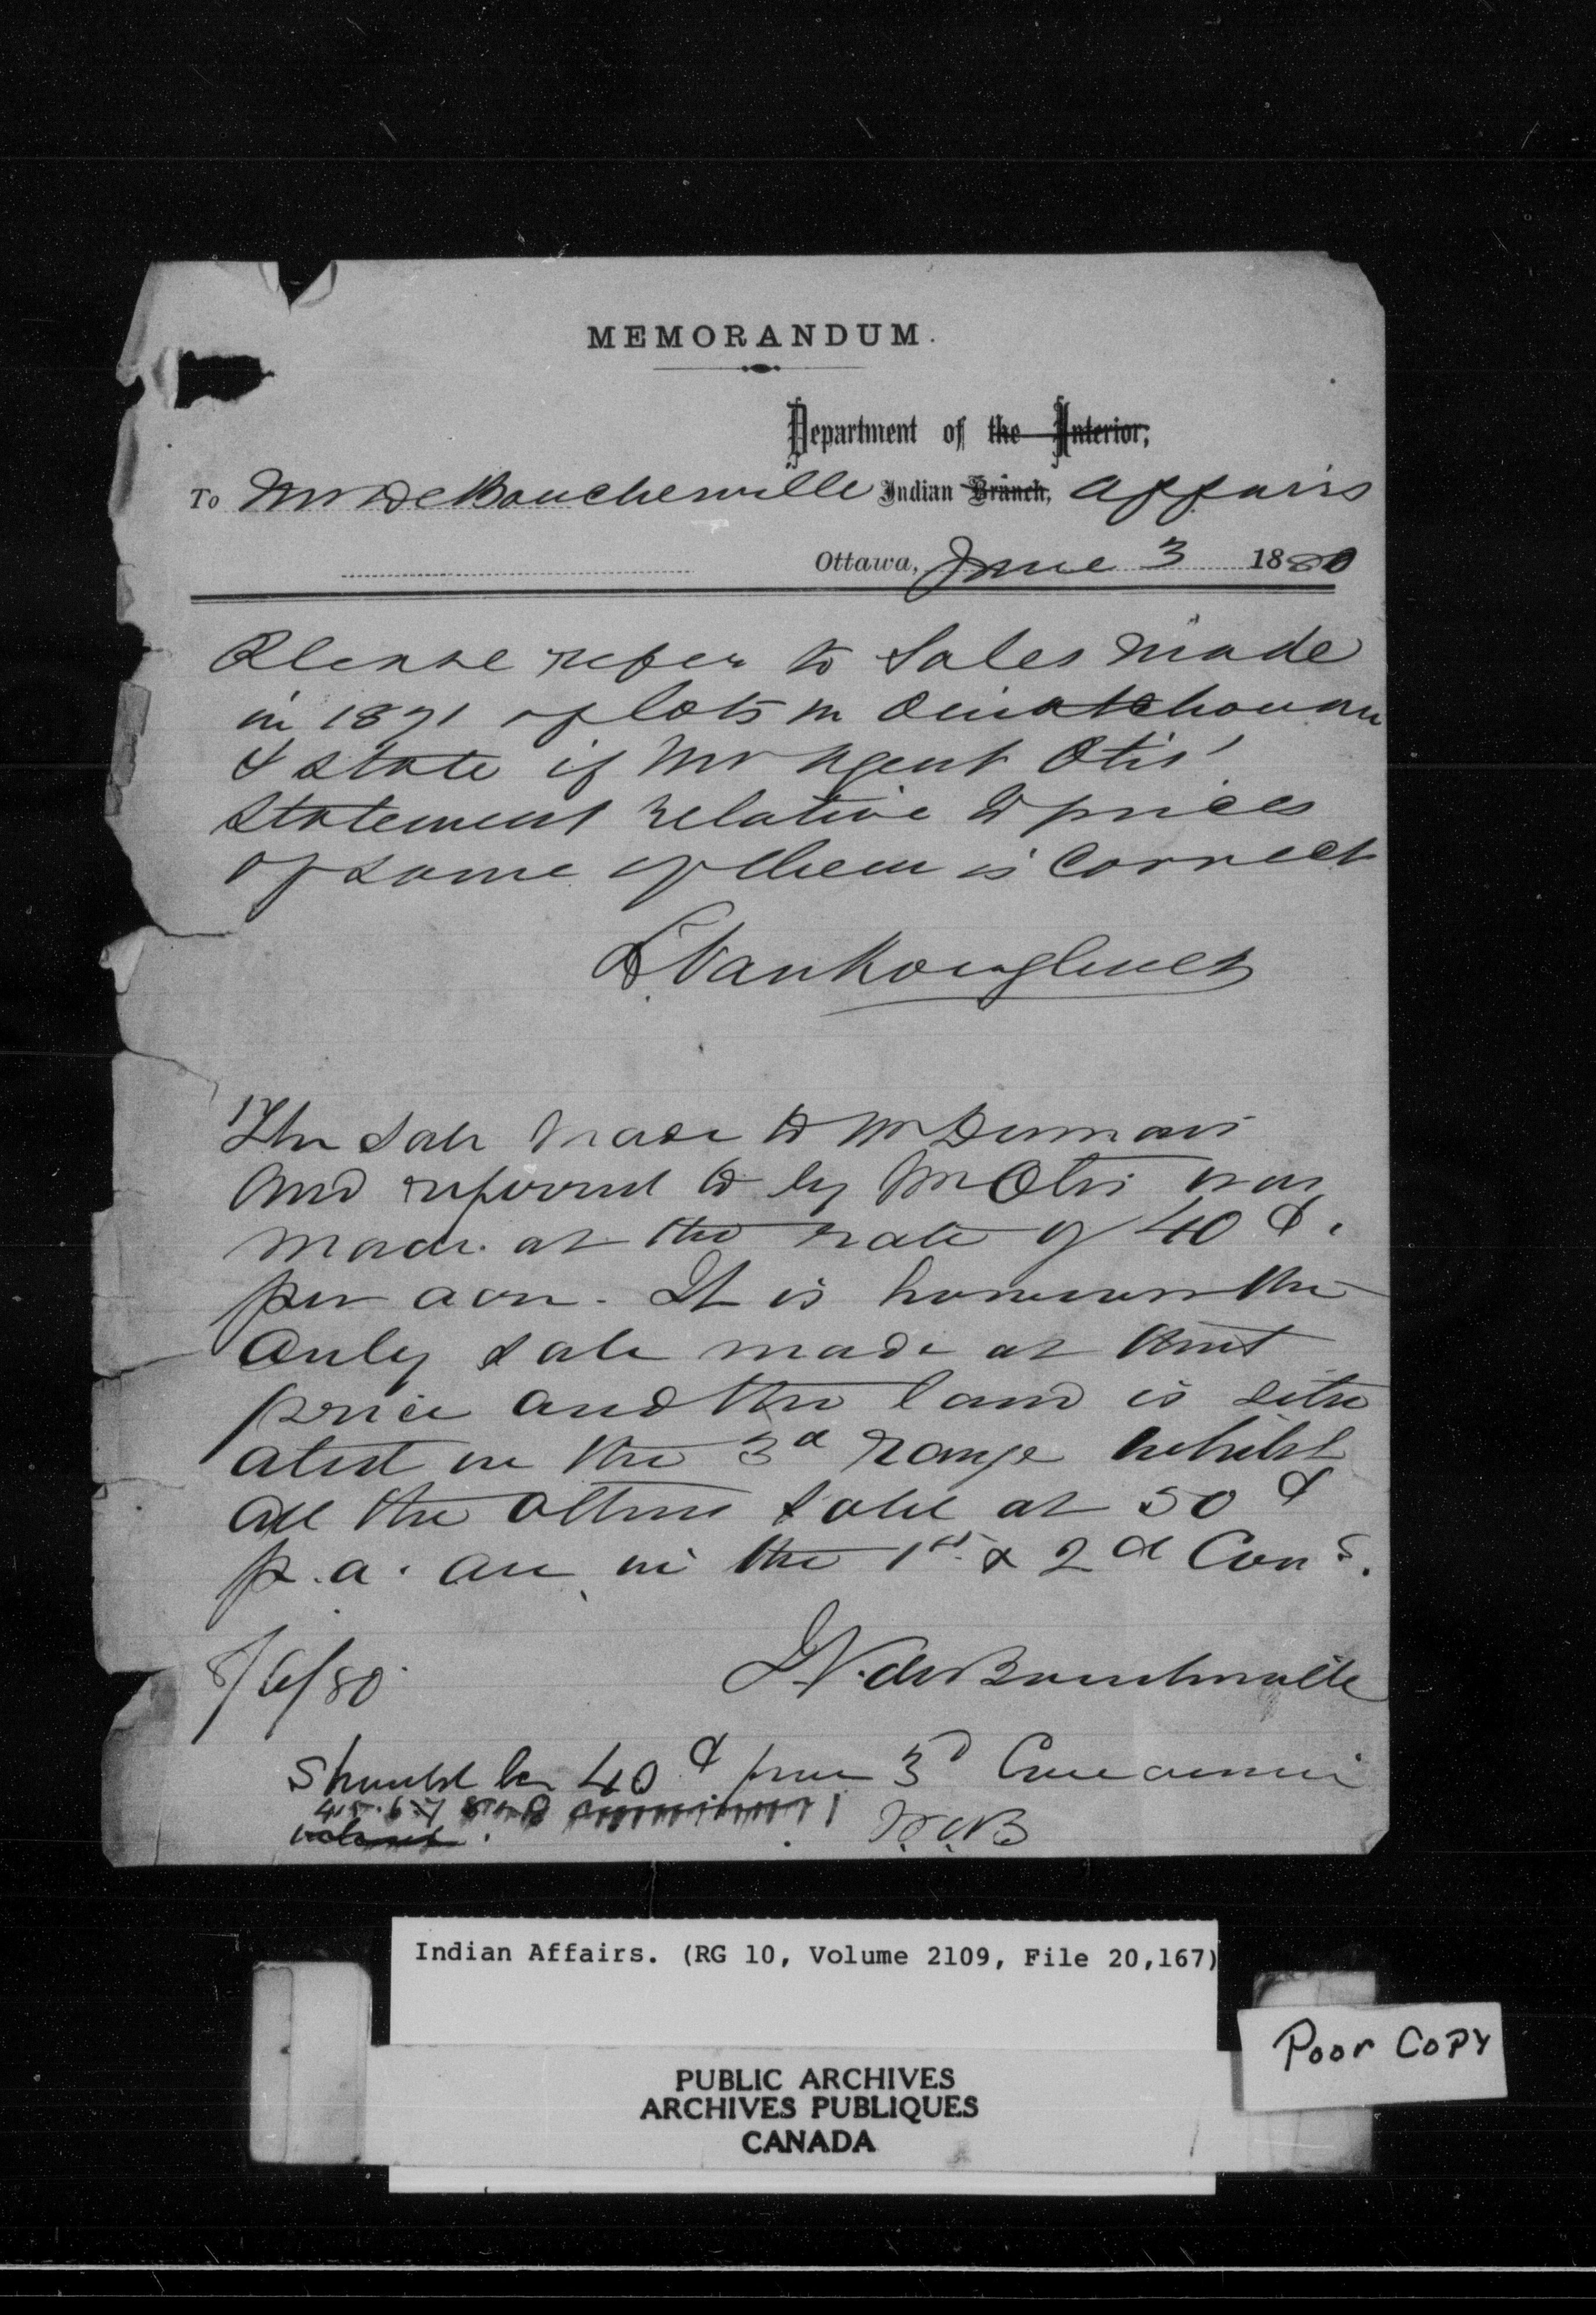 MEMORANDUM.
Department of the Interior;
To Mr De Boucherville Indian Branch, Affairs
Ottawa, June 3 1880
Please refer to Sales made
in 1871 of lots in Ouiatchouan
& state if Mr Agent Otis'
statement relative to prices
of some of them is correct
L. VanKoughnet
The sale made to Mr Dumais
and referred to by Mr Otis was
made at the rate of 40 ¢.
per acre. It is however the
only sale made at that
price and the land is situ
ated in the 3d range whilst
all the others sold at 50 ¢
p.a. are in the 1st & 2d Cons.
8/6/80 J.V. de Boucherville
Should be 40 ¢ from 3d Concession
4.5.6.7
Indian Affairs. (RG 10, Volume 2109, File 20,167)
Poor Copy
PUBLIC ARCHIVES
ARCHIVES PUBLIQUES
CANADA